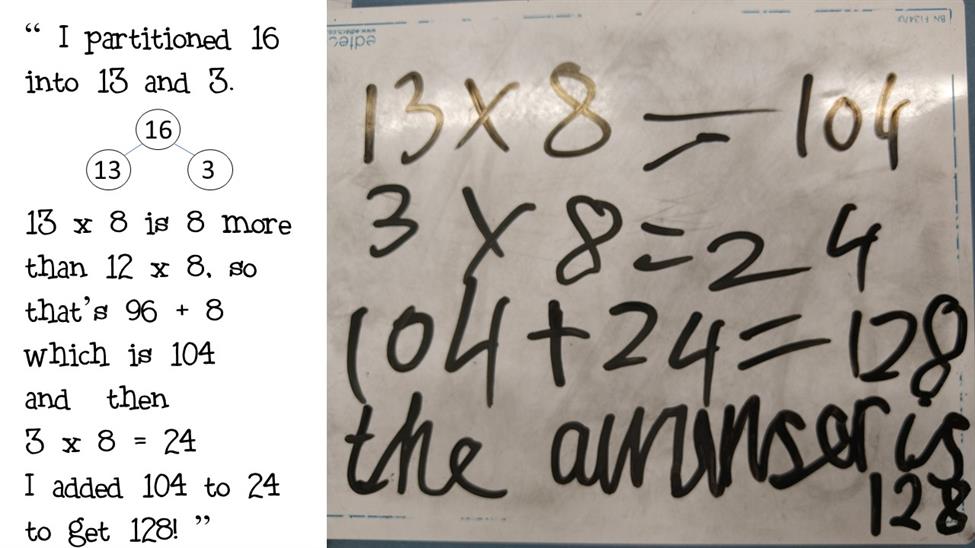 “ I partitioned 16
into 13 and 3.
16
13
3
13 x 8 is 8 more
than 12 x 8, so
that’s 96 + 8
which is 104
and then
3 x 8 = 24
I added 104 to 24
to get 128! ”
13 x 8 = 104
3 x 8 = 24
104 + 24 = 128
the is
128